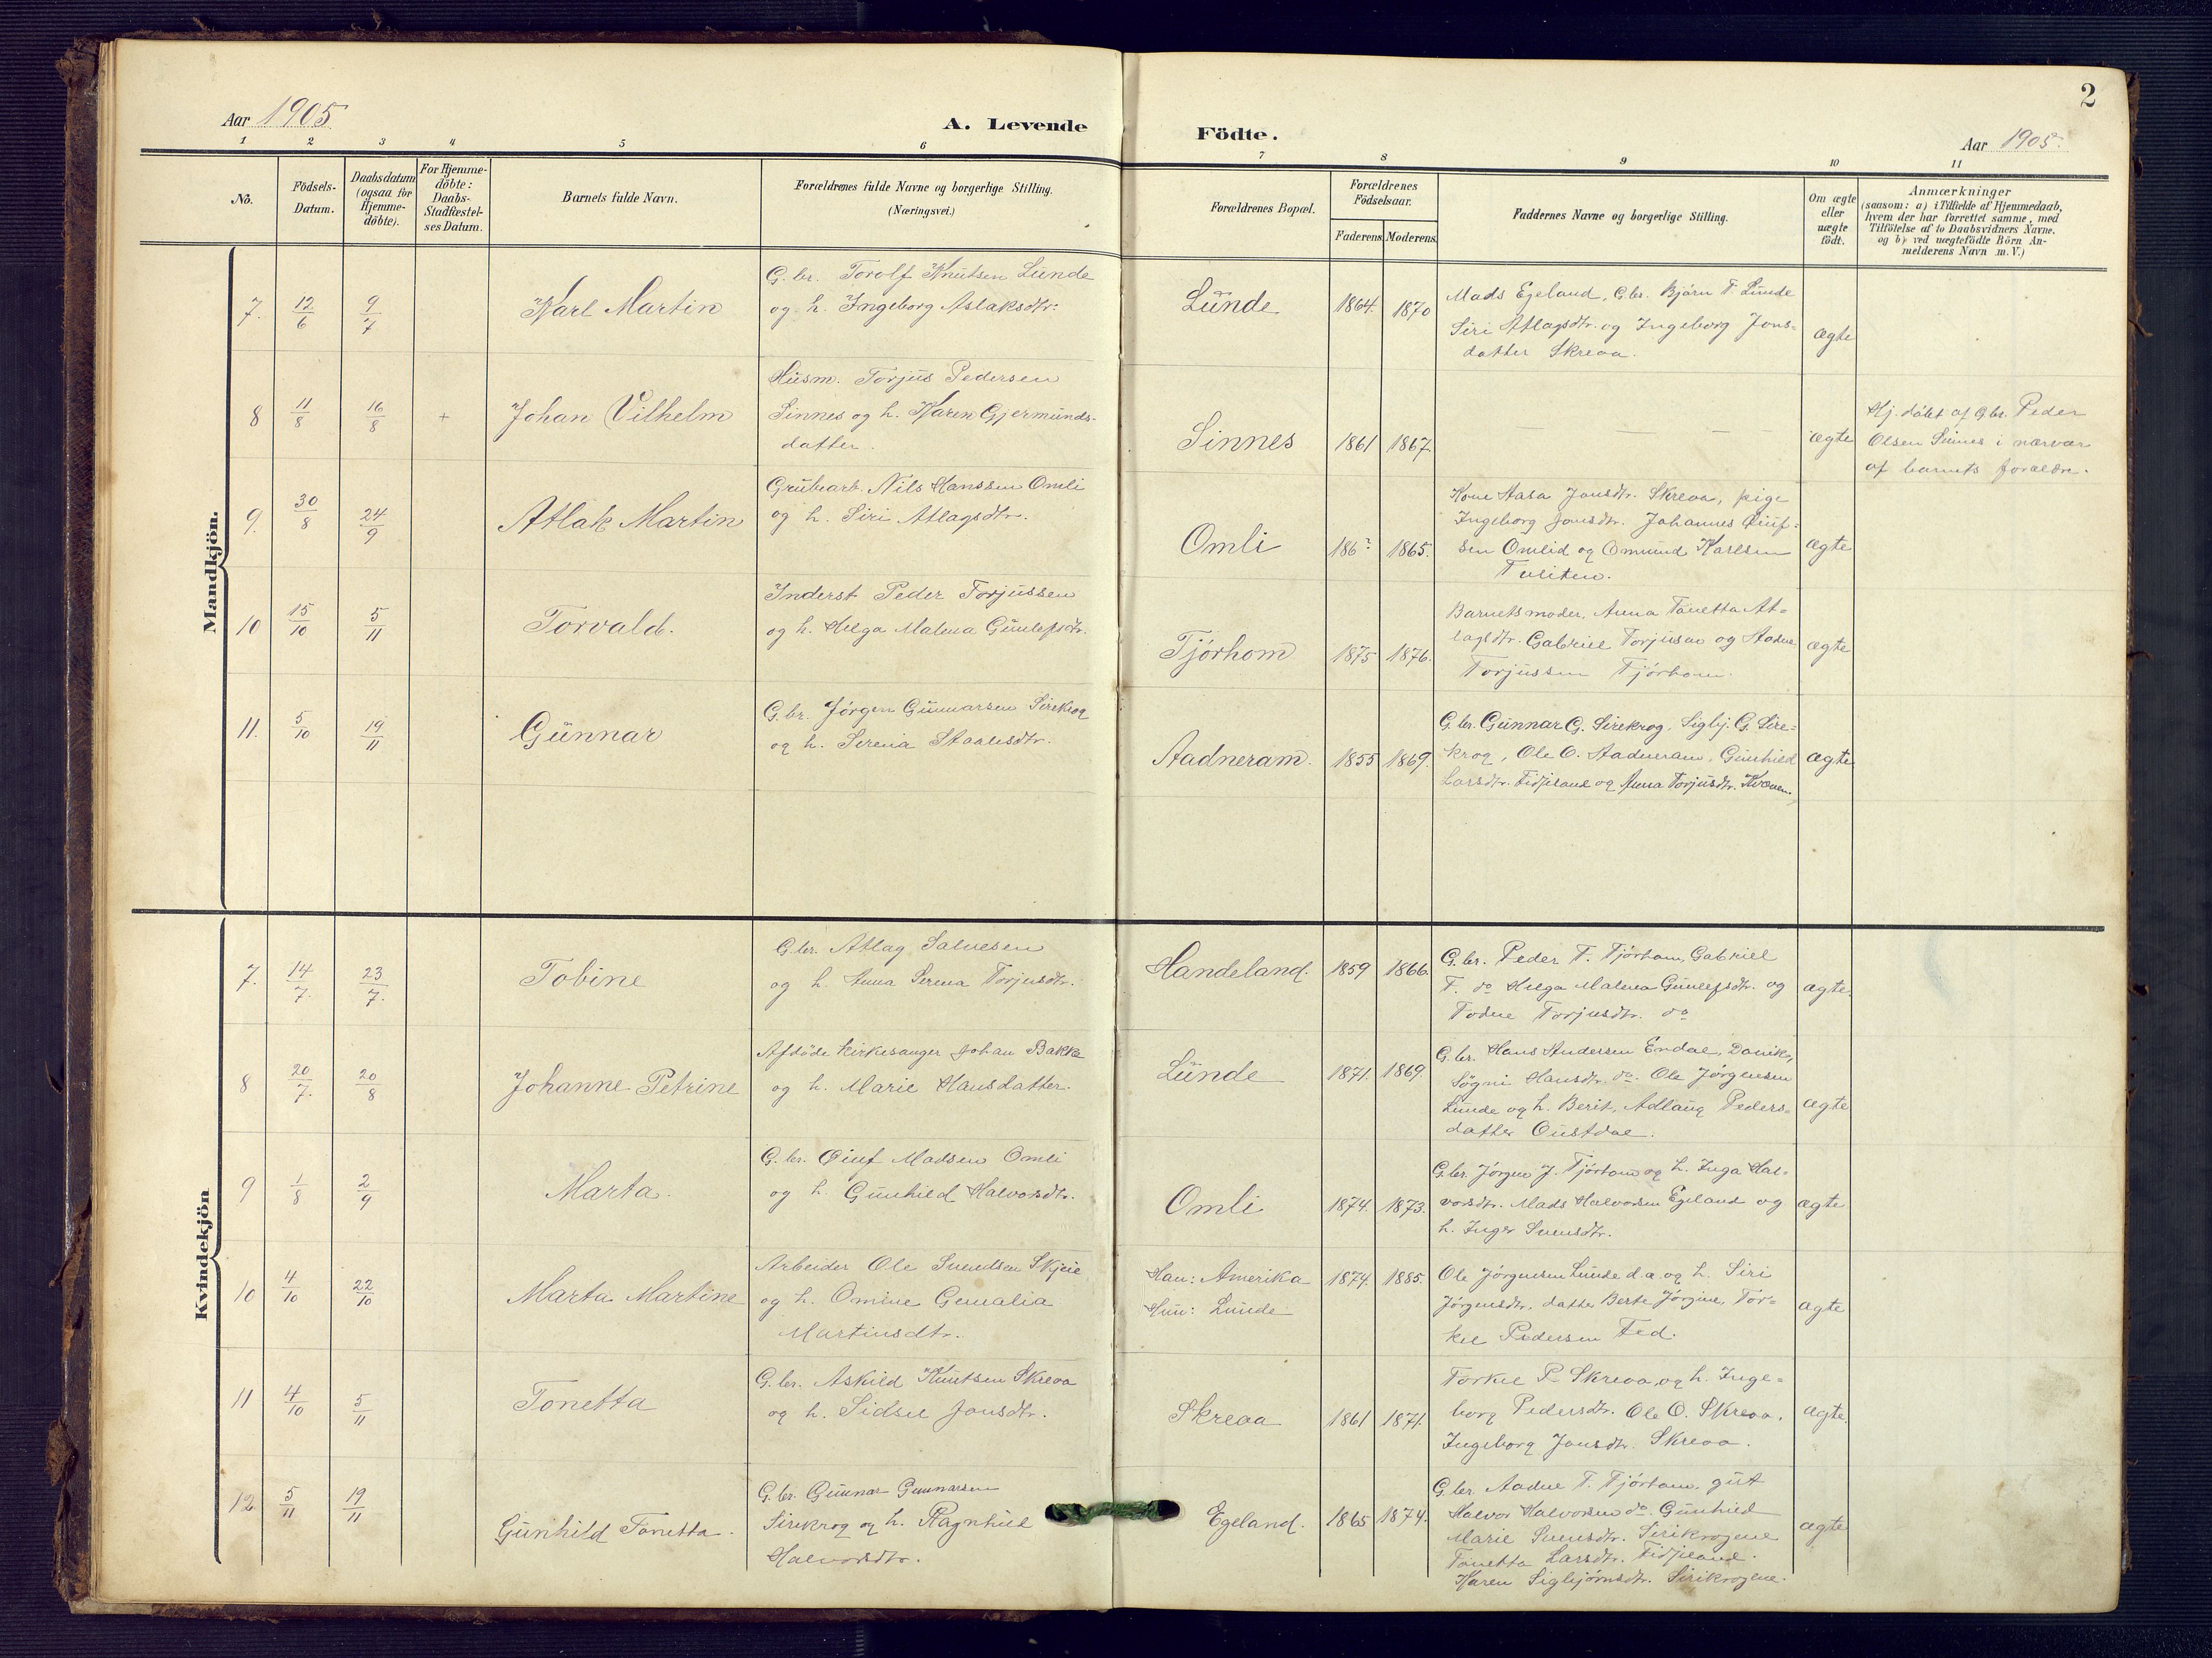 Aar 1905.
A. Levende
Födte.
Aar 1905.
2
1 2 3 4 5 6 7 8 9 10 11
No.
Födsels-Datum.
Daabsdatum (ogsaa for Hjemme-döbte).
For Hjemme-döbte: Daabs-Stadfæstel-ses Datum.
Barnets fulde Navn.
Forældrenes fulde Navne og borgerlige Stilling.
(Næringsvei.)
Forældrenes Bopæl.
Forældrenes Födselsaar.
Faderens Moderens
Faddernes Navne og borgerlige Stilling.
Om ægte eller uægte födt.
Anmærkninger
(saasom: a) i Tilfælde af Hjemmedaab,
hvem der har forrettet samme, med
Tilföielse af to Daabsvidners Navne,
og b) ved uægtefödte Börn An-
melderens Navn m. V.)
Mandkjön.
7. 12/6 9/7 Karl Martin
G.br. Torolf Knutsen Lunde
og h. Ingeborg Aslaksdtr.
Lunde 1864. 1870
Mads Egeland, G.br. Bjørn T. Lunde
Siri Atlagsdtr. og Ingeborg Jons=
datter Skreaa.
ægte
8 11/8 16/8 + Johan Vilhelm
Husm. Torjus Pedersen
Sinnes og h. Karen Gjermunds-
datter.
Sinnes 1861 1867.
— — —
ægte
Hj. døbt af Gbr. Peder
Olsen Sinnes i nærvær
af barnets forældre.
9. 30/8 24/9 Atlak Martin
Grubearb. Nils Hanssen Omli
og h. Siri Atlagsdtr.
Omli 186? 1865.
Kone Aasa Jonsdtr. Skreaa, pige
Ingeborg Jonsdtr. Johannes Øiuf=
sen Omlid og Omund Karlsen
ægte
10 15/10 5/11 Torvald.
Inderst Peder Torjussen
og h. Helga Malena Gunlefsdtr.
Tjørhom 1875 1876.
Barnets moder, Anna Tonetta At=
lagsdtr. Gabriel Torjusen og Aadne
Torjussen Tjørhom.
ægte
11. 5/10 19/11 Gunnar
G.br. Jørgen Gunnarsen Sirekrog
og h. Serina Staalesdtr.
Aadneram. 1855 1869.
G.br. Gunnar G. Sirekrog, Sigbj. G. Sire=
krog, Ole O. Aadneram, Gunhild
Larsdtr. Fidjeland og Anna Torjusdtr. Kvæven.
ægte
Kvindekjön
7. 14/7. 23/7. Tobine
G.br. Atlag Salvesen
og h. Anna Serena Torjusdtr.
Handeland. 1859 1866.
G.br. Peder T. Tjørhom, Gabriel
T. do Helga Malena Gunlefsdtr. og
Todne Torjusdtr. do
ægte.
8 20/7. 20/8 Johanne Petrine
Afdøde kirkesanger Johan Bakke
og h. Marie Hansdatter.
Lunde 1871. 1869.
G.br. Hans Andersen Endal, Danik,
Søgni Hansdtr. do. Ole Jørgensen
Lunde og h. Berit, Adlaug Peders=
datter Oustdal.
ægte
9 1/8 2/9 Marta.
G.br. Øiuf Madsen Omli
og h. Gunhild Halvorsdtr.
Omli 1874. 1873.
G.br. Jørgen J. Tjørhom og h. Inga Hal=
vorsdtr. Mads Halvorsen Egeland og
h. Inger Svensdtr.
ægte
10 4/10 22/10 Marta Martine
Arbeider Ole Svendsen Skjeie
og h. Omine Gemalia
Martinsdtr.
Han: Amerika 1874. 1885.
Hun: Lunde
Ole Jørgensen Lunde d.a. og h. Siri
Jørgensdtr, datter Berte Jørgine, Tor=
kel Pedersen Fed.
ægte
11 4/10 5/11 Tonetta
G.br. Askild Knutsen Skreaa
og h. Sidsel Jonsdtr.
Skreaa 1861 1871.
Torkel P. Skreaa, og h. Inge=
borg Pedersdtr. Ole O. Skreaa.
Ingeborg Jonsdtr. Skreaa.
ægte.
12 5/11 19/11 Gunhild Tonetta.
G.br. Gunnar Gunnarsen
Sirekrog og h. Ragnhild
Halvorsdtr.
Egeland. 1865 1874.
G.br Aadne T. Tjørhom, gut
Halvor Halvorsen do. Gunhild
Marie Svensdtr. Sirikrogene
Tonetta Larsdtr. Fidjeland.
Karen Sigbjørnsdtr. Sirikrogene.
ægte